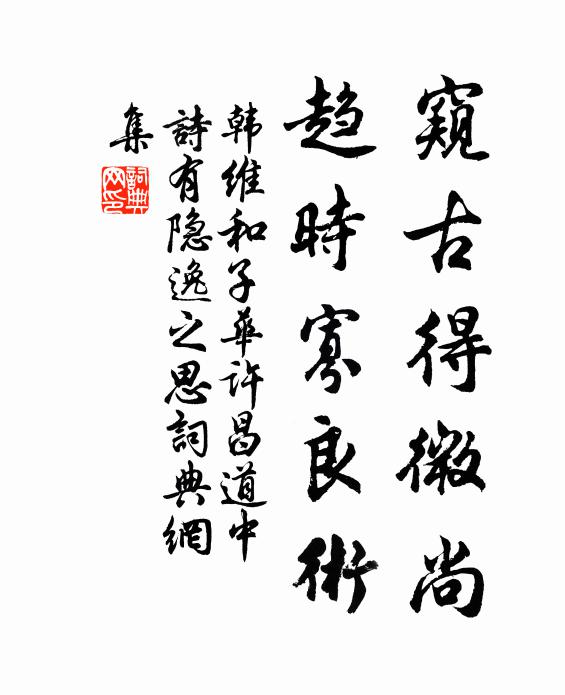 窺古得微尚
趋時寡良術
韩維和子華许昌道中
詩有隐逸之思詞典網
集
詞典网印